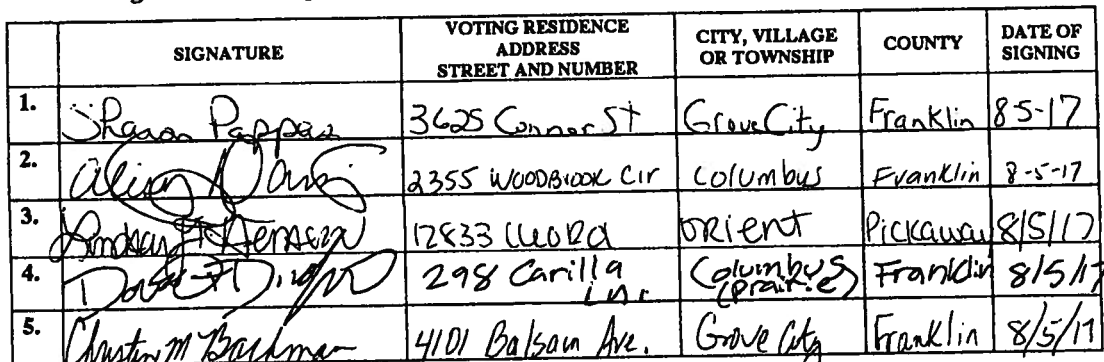 SIGNATURE
VOTING RESIDENCE ADDRESS STREET AND NUMBER
CITY, VILLAGE OR TOWNSHIP
COUNTY
DATE OF SIGNING
1. Sharon Pappas 3625 Connor St Grove City Franklin 8-5-17
2. Alison Davis 2355 WOODBROOK CIR Columbus Franklin 8-5-17
3. Lindsay 12833 ORIENT Pickaway 8/5/17
4. 298 Carilla Ln. Columbus (prairie) Franklin 8/5/17
5. Christin M Bachman 4101 Balsam Ave. Grove City Franklin 8/5/17